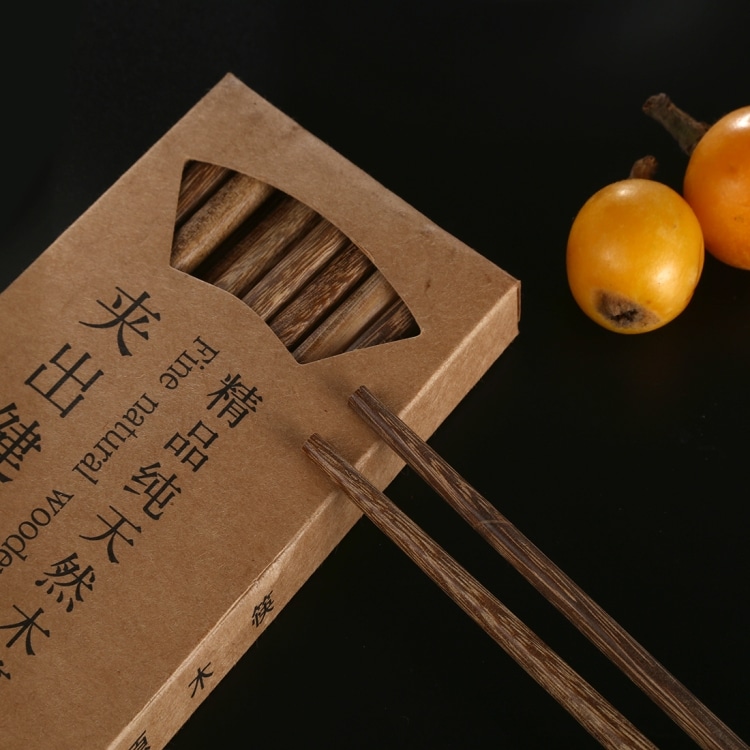 夹出健
Fine natural
精品纯天然木
木筷